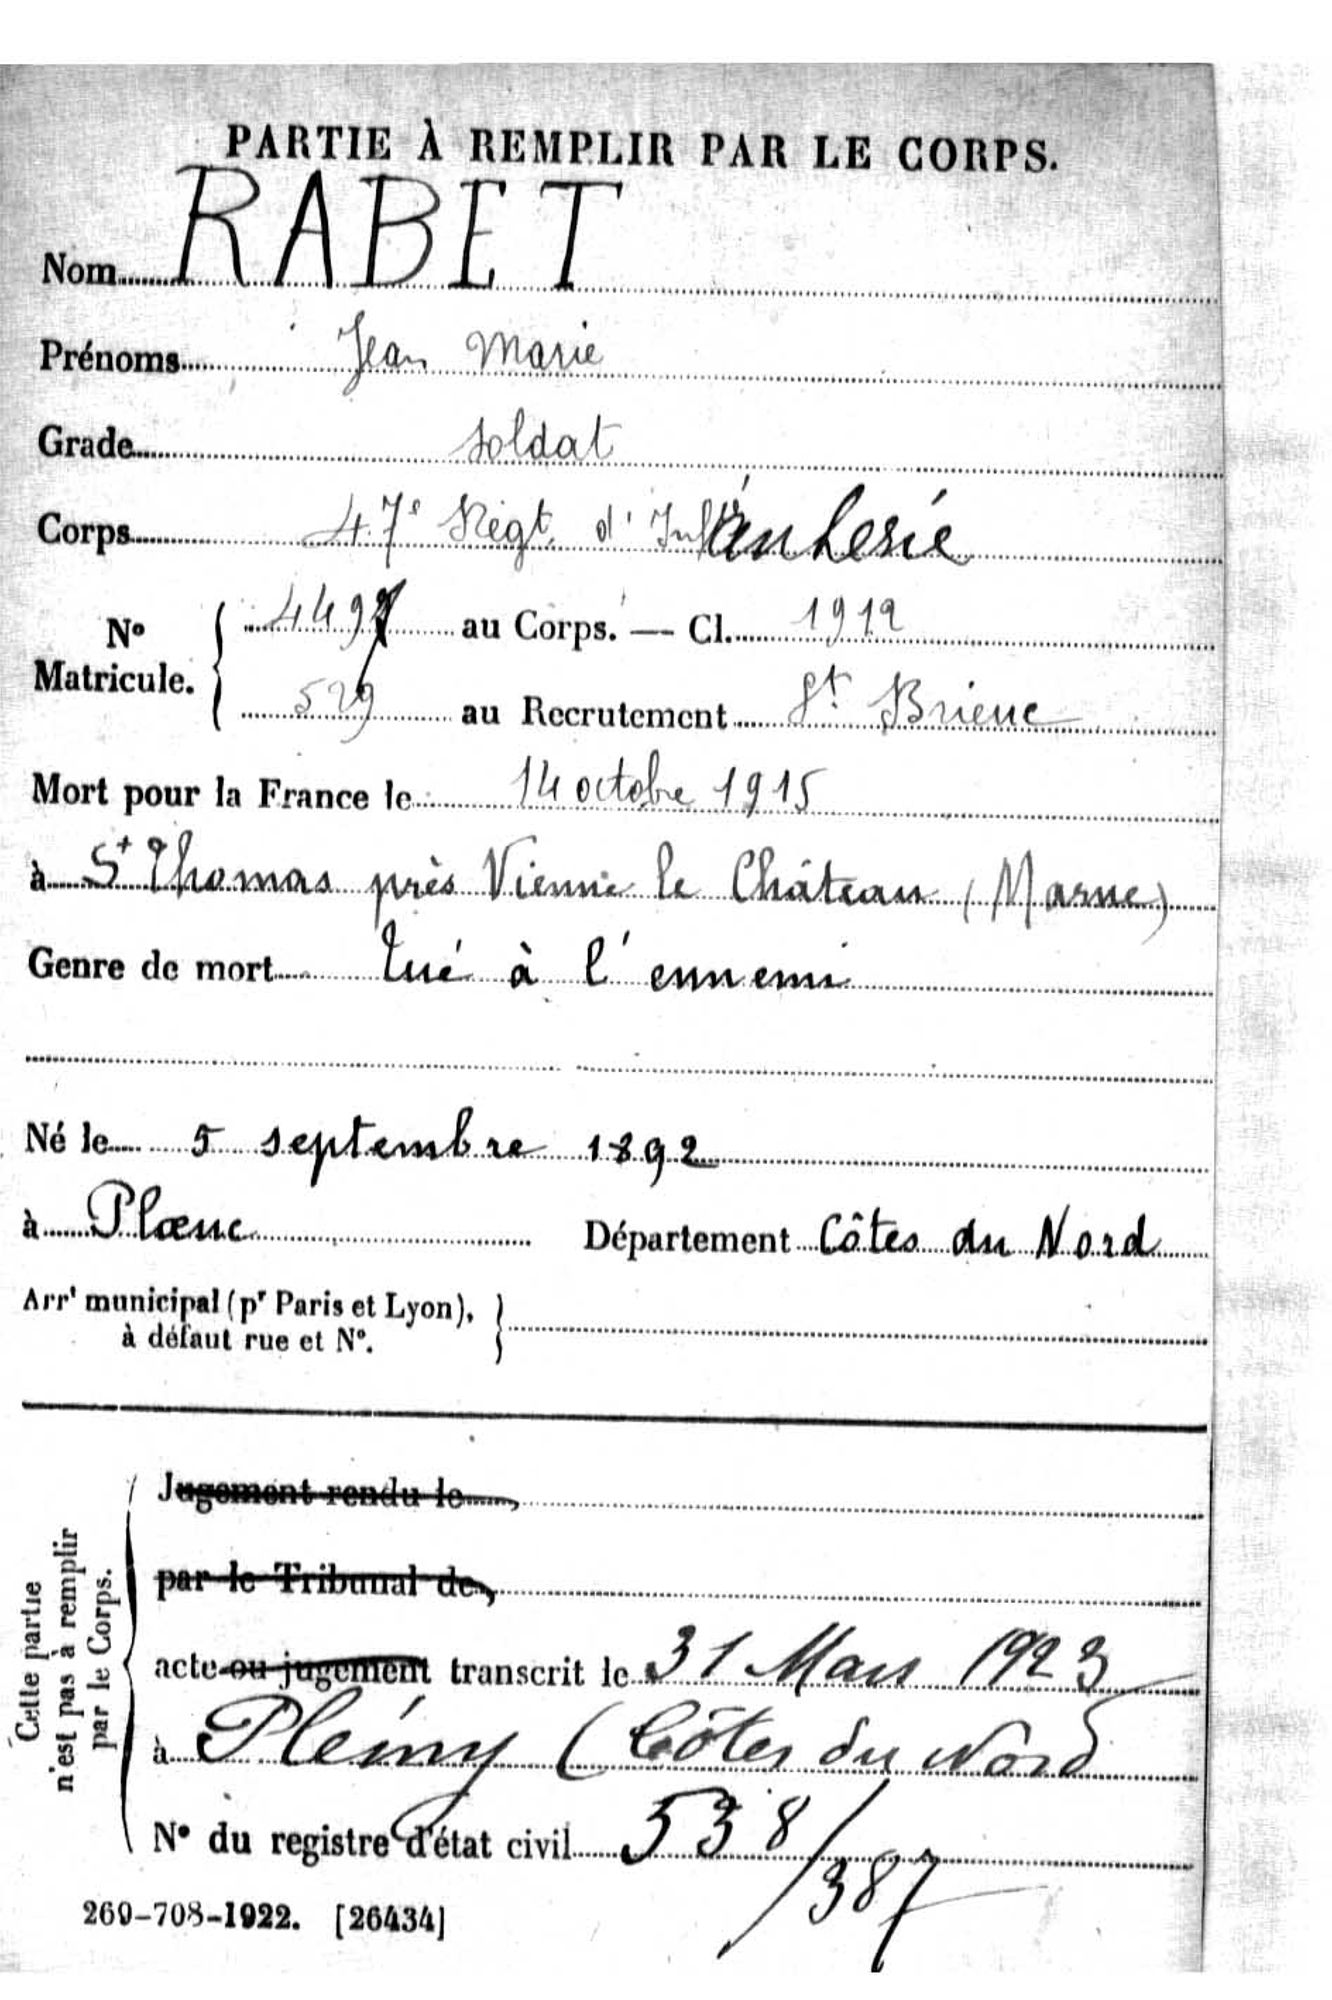 PARTIE À REMPLIR PAR LE CORPS.
Nom RABET
Prénoms Jean Marie
Grade soldat
Corps 47e Régt d'Infanterie
No Matricule. 4497 au Corps. — Cl. 1912
529 au Recrutement St Brieuc
Mort pour la France le 14 octobre 1915
à St Thomas près Vienne le Château (Marne)
Genre de mort Tué à l'ennemi
Né le 5 septembre 1892
à Plœuc Département Côtes du Nord
Arrt municipal (pr Paris et Lyon),
à défaut rue et No.
Cette partie
n'est pas à remplir
par le Corps.
Jugement rendu le
par le Tribunal de
acte ou jugement transcrit le 31 Mars 1923
à Plémy (Côtes du Nord
No du registre d'état civil 538/387
269-708-1922. [26434]